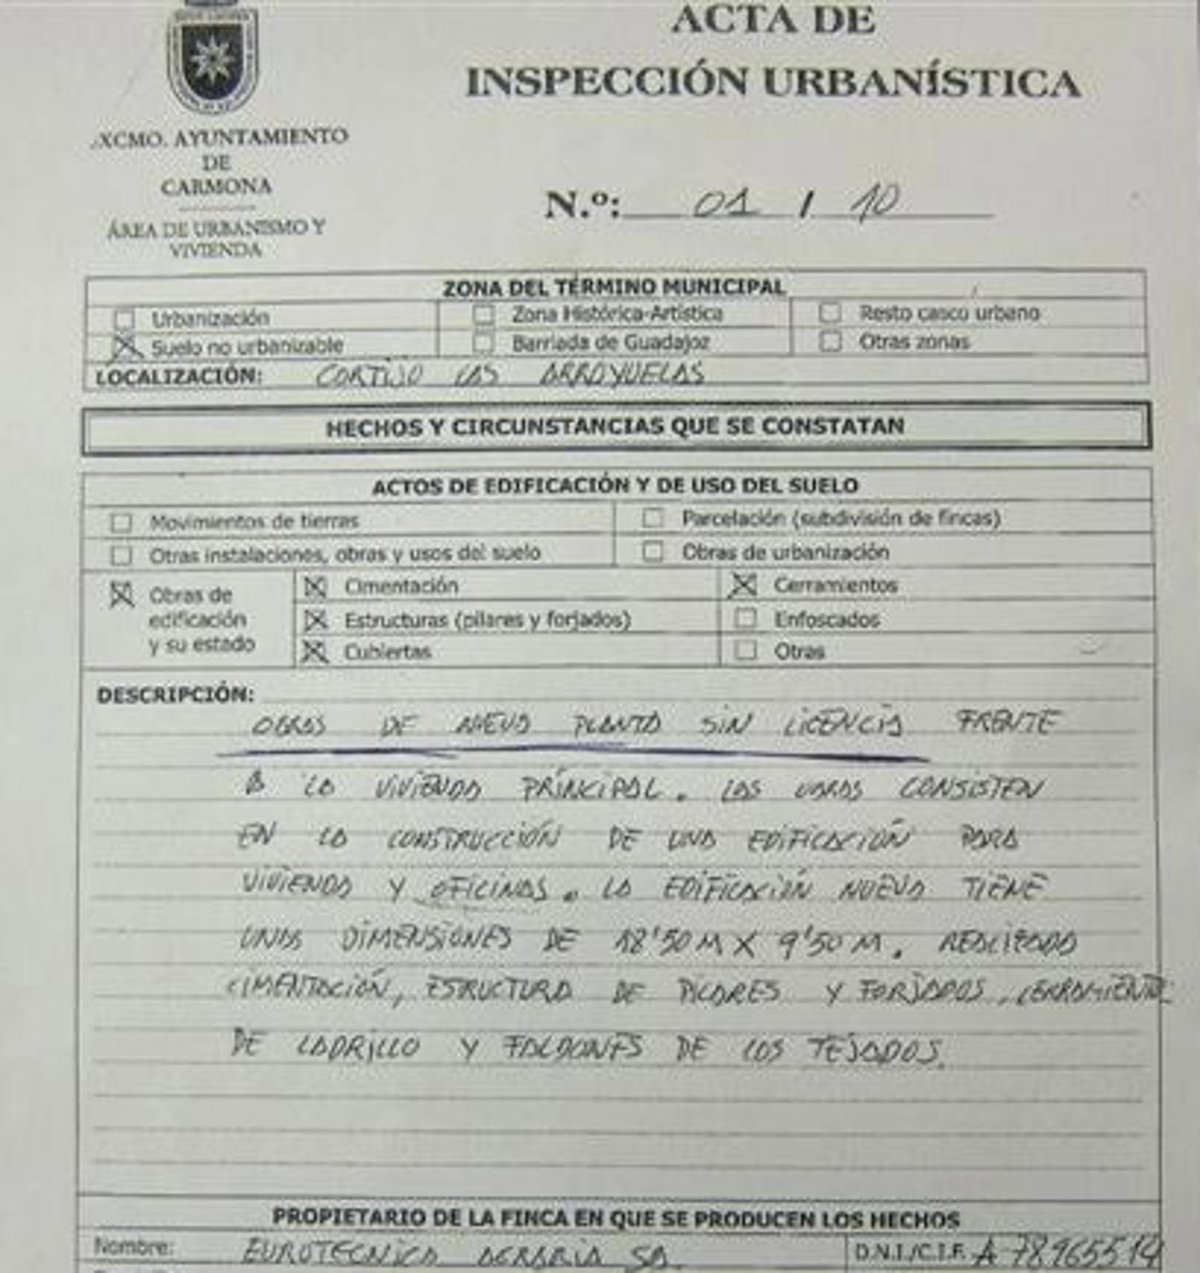 ACTA DE
INSPECCIÓN URBANÍSTICA
XCMO. AYUNTAMIENTO
DE
CARMONA
ÁREA DE URBANISMO Y
VIVIENDA
N.º: 01 / 10
ZONA DEL TÉRMINO MUNICIPAL
Urbanización Zona Histórica-Artística Resto casco urbano
Suelo no urbanizable Barriada de Guadajoz Otras zonas
LOCALIZACIÓN: CORTIJO LAS ARROYUELAS
HECHOS Y CIRCUNSTANCIAS QUE SE CONSTATAN
ACTOS DE EDIFICACIÓN Y DE USO DEL SUELO
Movimientos de tierras Parcelación (subdivisión de fincas)
Otras instalaciones, obras y usos del suelo Obras de urbanización
Obras de edificación y su estado
Cimentación Cerramientos
Estructuras (pilares y forjados) Enfoscados
Cubiertas Otras
DESCRIPCIÓN:
OBRAS DE NUEVA PLANTA SIN LICENCIA FRENTE
A LA VIVIENDA PRÍNCIPAL. LAS OBRAS CONSISTEN
EN LA CONSTRUCCIÓN DE UNA EDIFICACIÓN PARA
VIVIENDA Y OFICINAS. LA EDIFICACIÓN NUEVA TIENE
UNAS DIMENSIONES DE 18'50 M X 9'50 M. REALIZADA
CIMENTACIÓN, ESTRUCTURA DE PILARES Y FORJADOS, CERRAMIENTO
DE LADRILLO Y FALDONES DE LOS TEJADOS.
PROPIETARIO DE LA FINCA EN QUE SE PRODUCEN LOS HECHOS
Nombre: EUROTECNICA AGRARIA SA. D.N.I./C.I.F. A 78965514